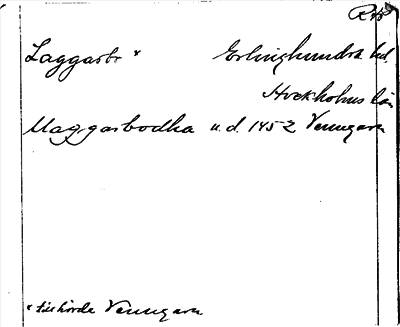 Laggarbo x Erlinghundra hd.
Stockholms län
Maggasbodha u.d. 1452 Venngarn
x tillhörde Venngarn